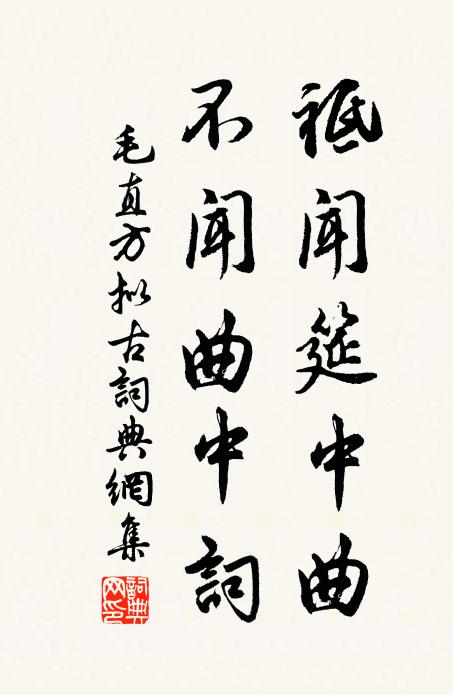 祗聞筵中曲
不聞曲中詞
毛直方拟古詞典網集
詞典网印